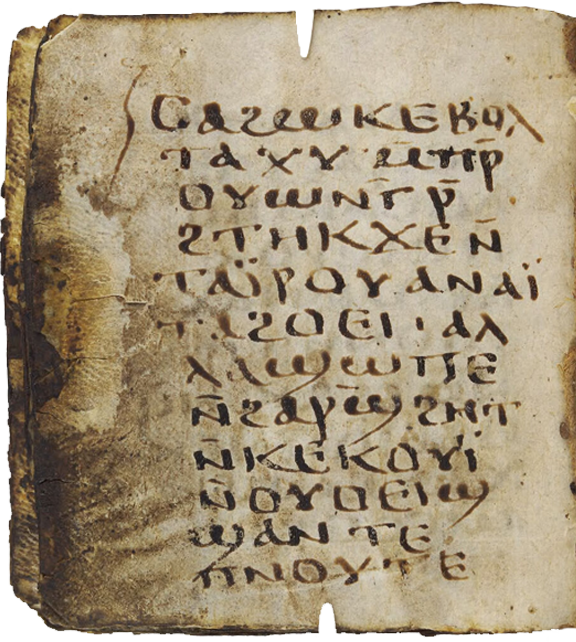 Ⲥⲁϩⲱⲱⲕⲉⲃⲟⲗ
ⲧⲁⲭⲩ ⲙ̄ⲡⲣ̄
ⲟⲩⲱⲛ̄ⲅⲣ̄
ϩⲧⲏⲕϫⲉⲛ̄
ⲧⲁⲓ̈ⲣⲟⲩⲁⲛⲁⲓ̈
ⲧⲁϩⲟⲉⲓ· ⲁⲗ
ⲗⲁϣⲱⲡⲉ
ⲛ̄ϩⲁⲣϣ̄ϩⲏⲧ
ⲛ̄ⲕⲉⲕⲟⲩⲓ̈
ⲛ̄ⲟⲩⲟⲉⲓϣ
ϣⲁⲛⲧⲉ
ⲡⲛⲟⲩⲧⲉ